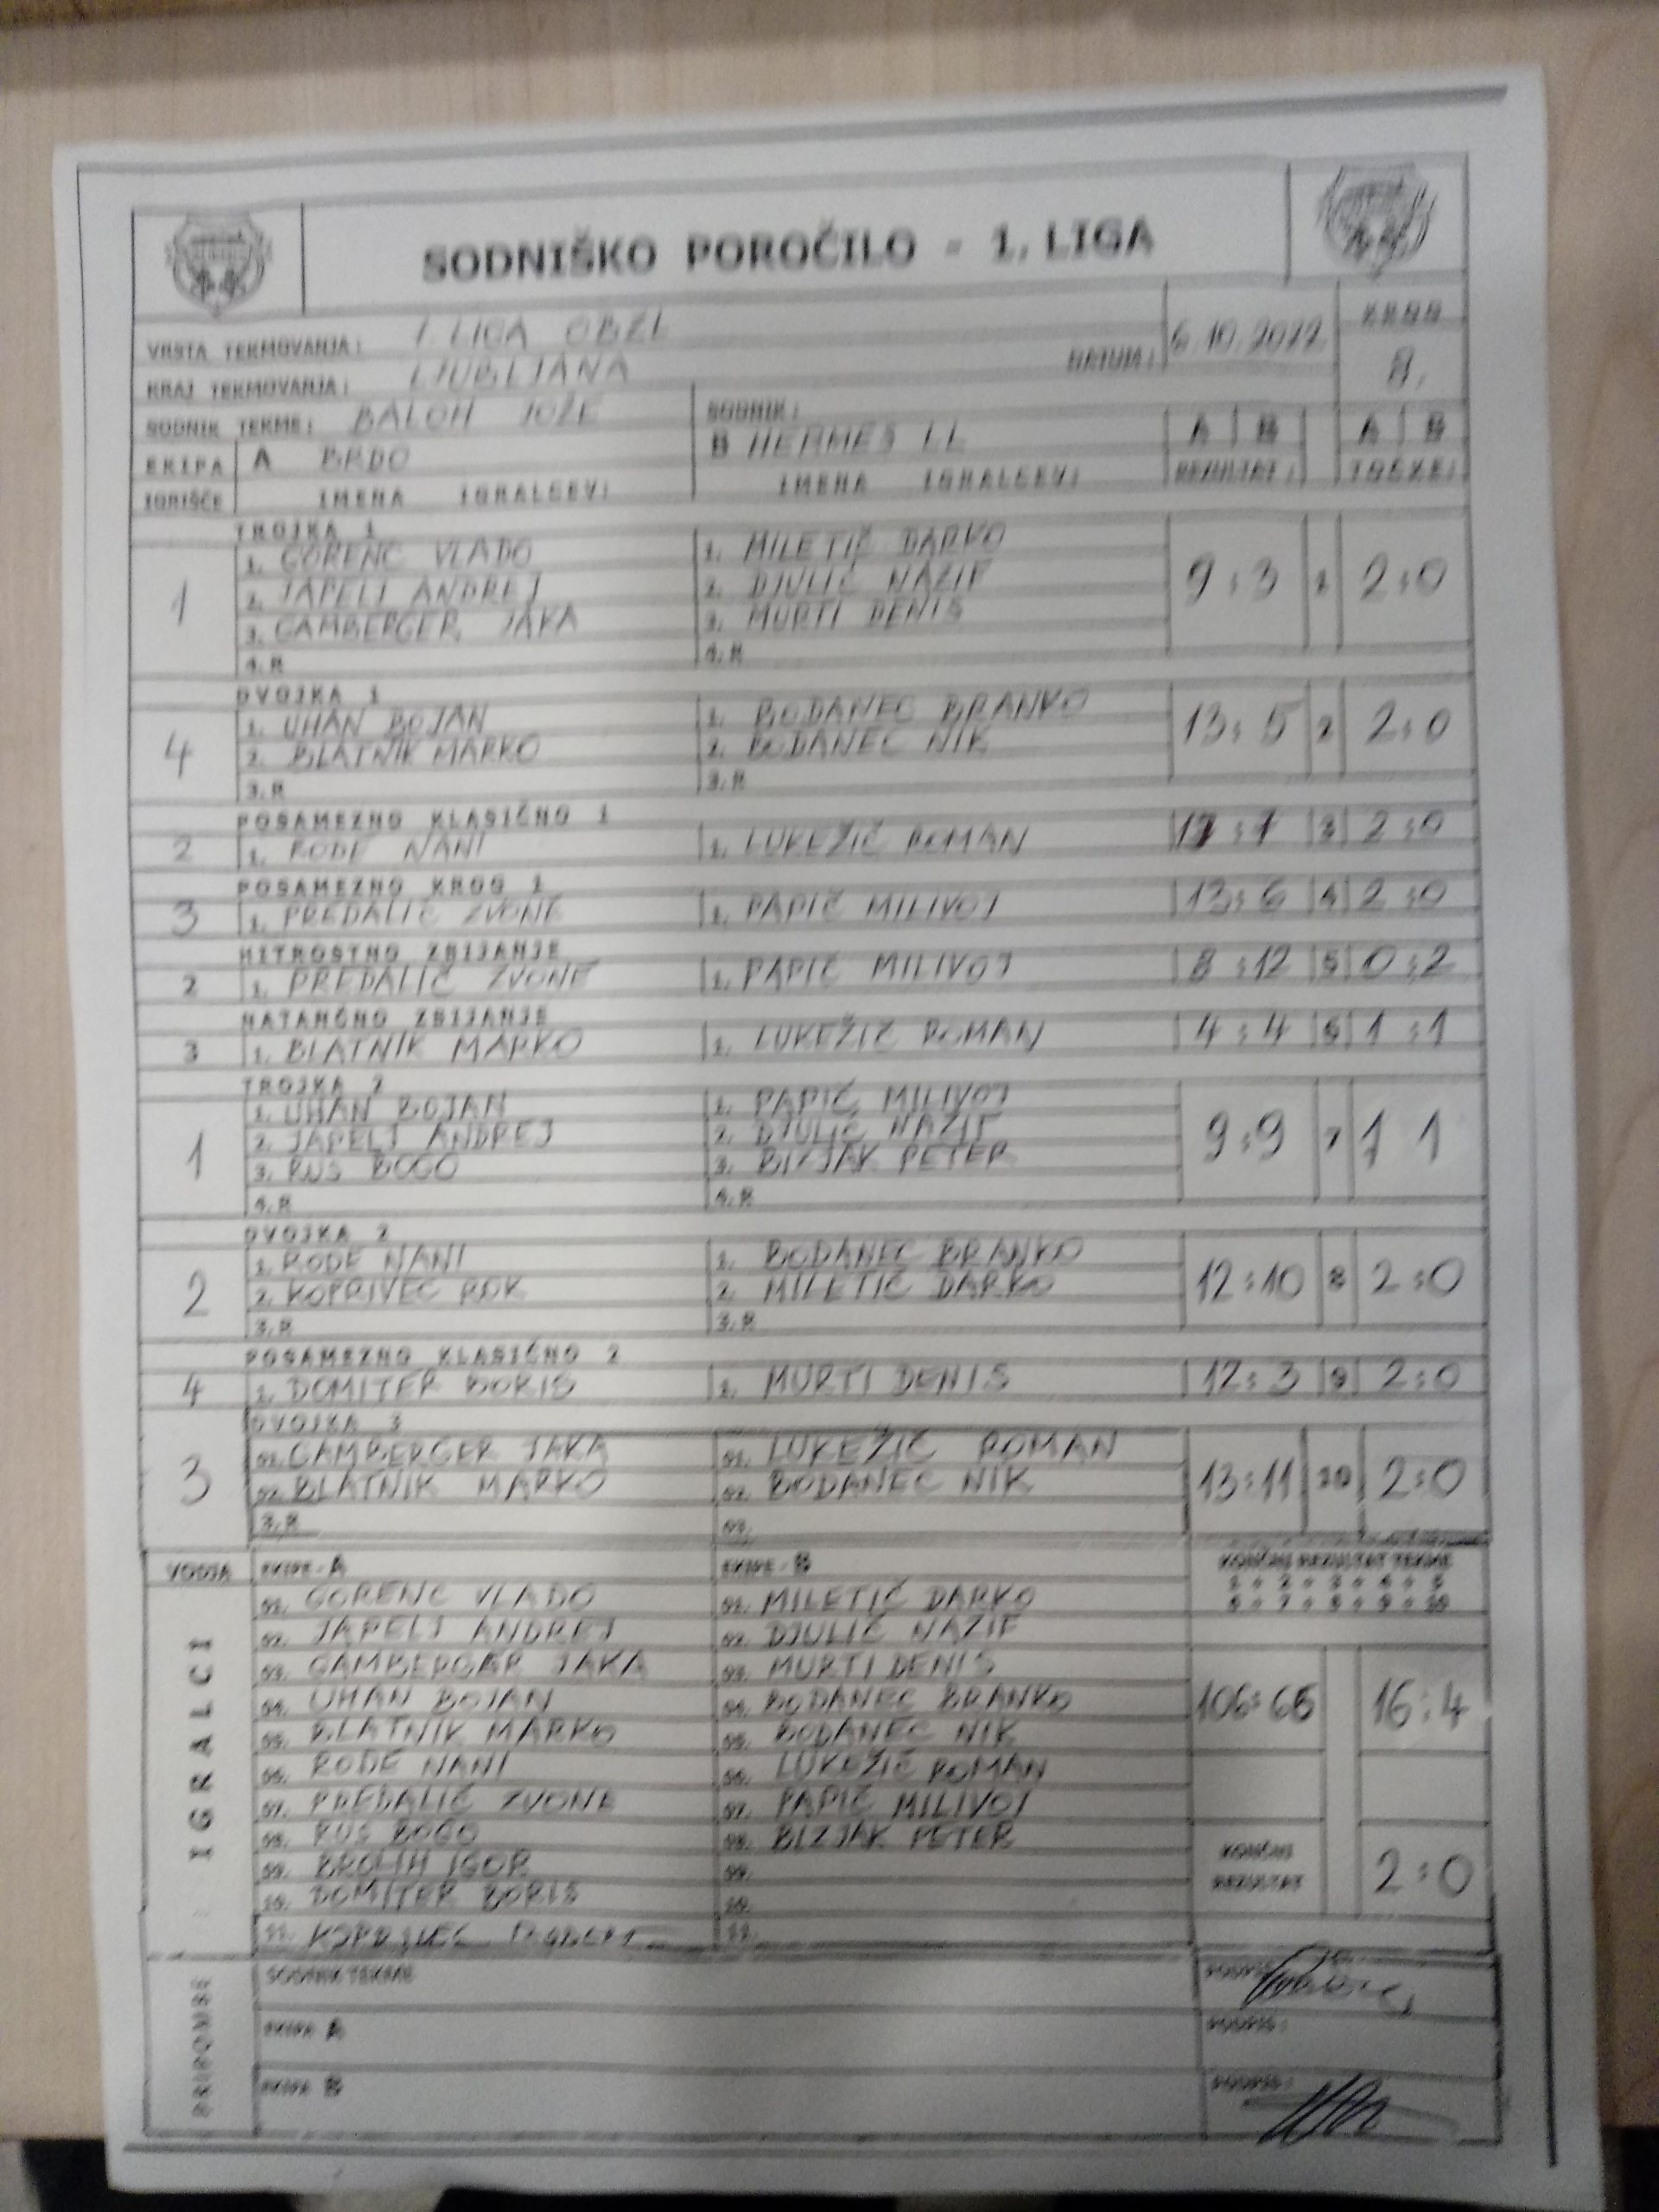 SODNIŠKO POROČILO - 1. LIGA
VRSTA TEKMOVANJA: 1. LIGA OBZL
KRAJ TEKMOVANJA: LJUBLJANA
DATUM: 6.10.2022
KROG
8.
SODNIK TEKME: BALOH JOŽE SODNIK:
EKIPA A BRDO B HERMES LL A B A B
IGRIŠČE IMENA IGRALCEV: IMENA IGRALCEV: REZULTAT: TOČKE:
TROJKA 1
1 9:3 1 2:0
1. GORENC VLADO 1. MILETIČ DARKO
2. JAPELJ ANDREJ 2. DJULIČ NAZIF
3. GAMBERGER JAKA 3. MURTI DENIS
4.R 4.R
DVOJKA 1
4 13:5 2 2:0
1. UHAN BOJAN 1. BODANEC BRANKO
2. BLATNIK MARKO 2. BODANEC NIK
3.R 3.R
POSAMEZNO KLASIČNO 1
2 1. RODE NANI 1. LUKEŽIČ ROMAN 3 2:0
POSAMEZNO KROG 1
3 1. PREDALIČ ZVONE 1. PAPIČ MILIVOJ 13:6 4 2:0
HITROSTNO ZBIJANJE
2 1. PREDALIČ ZVONE 1. PAPIČ MILIVOJ 8:12 5 0:2
NATANČNO ZBIJANJE
3 1. BLATNIK MARKO 1. LUKEŽIČ ROMAN 4:4 6 1:1
TROJKA 2
1 9:9 7 1 1
1. UHAN BOJAN 1. PAPIČ MILIVOJ
2. JAPELJ ANDREJ 2. DJULIČ NAZIF
3. RUS BOGO 3. BIZJAK PETER
4.R 4.R
DVOJKA 2
2 12:10 8 2:0
1. RODE NANI 1. BODANEC BRANKO
2. KOPRIVEC ROK 2. MILETIČ DARKO
3.R 3.R
POSAMEZNO KLASIČNO 2
4 1. DOMITER BORIS 1. MURTI DENIS 12:3 9 2:0
DVOJKA 3
3 13:11 10 2:0
01. GAMBERGER JAKA 01. LUKEŽIČ ROMAN
02. BLATNIK MARKO 02. BODANEC NIK
3.R 03.
VODJA EKIPE-A EKIPE-B KONČNI REZULTAT TEKME
1 + 2 + 3 + 4 + 5
6 + 7 + 8 + 9 + 10
IGRALCI
01. GORENC VLADO 01. MILETIČ DARKO
02. JAPELJ ANDREJ 02. DJULIČ NAZIF
03. GAMBERGAR JAKA 03. MURTI DENIS
04. UHAN BOJAN 04. BODANEC BRANKO 106:65 16:4
05. BLATNIK MARKO 05. BODANEC NIK
06. RODE NANI 06. LUKEŽIČ ROMAN
07. PREDALIČ ZVONE 07. PAPIČ MILIVOJ
08. RUS BOGO 08. BIZJAK PETER
09. BROLIH IGOR 09. KONČNI REZULTAT 2:0
10. DOMITER BORIS 10.
11. 11.
PRIPOMBE
SODNIK TEKME PODPIS:
EKIPA A PODPIS:
EKIPA B PODPIS: